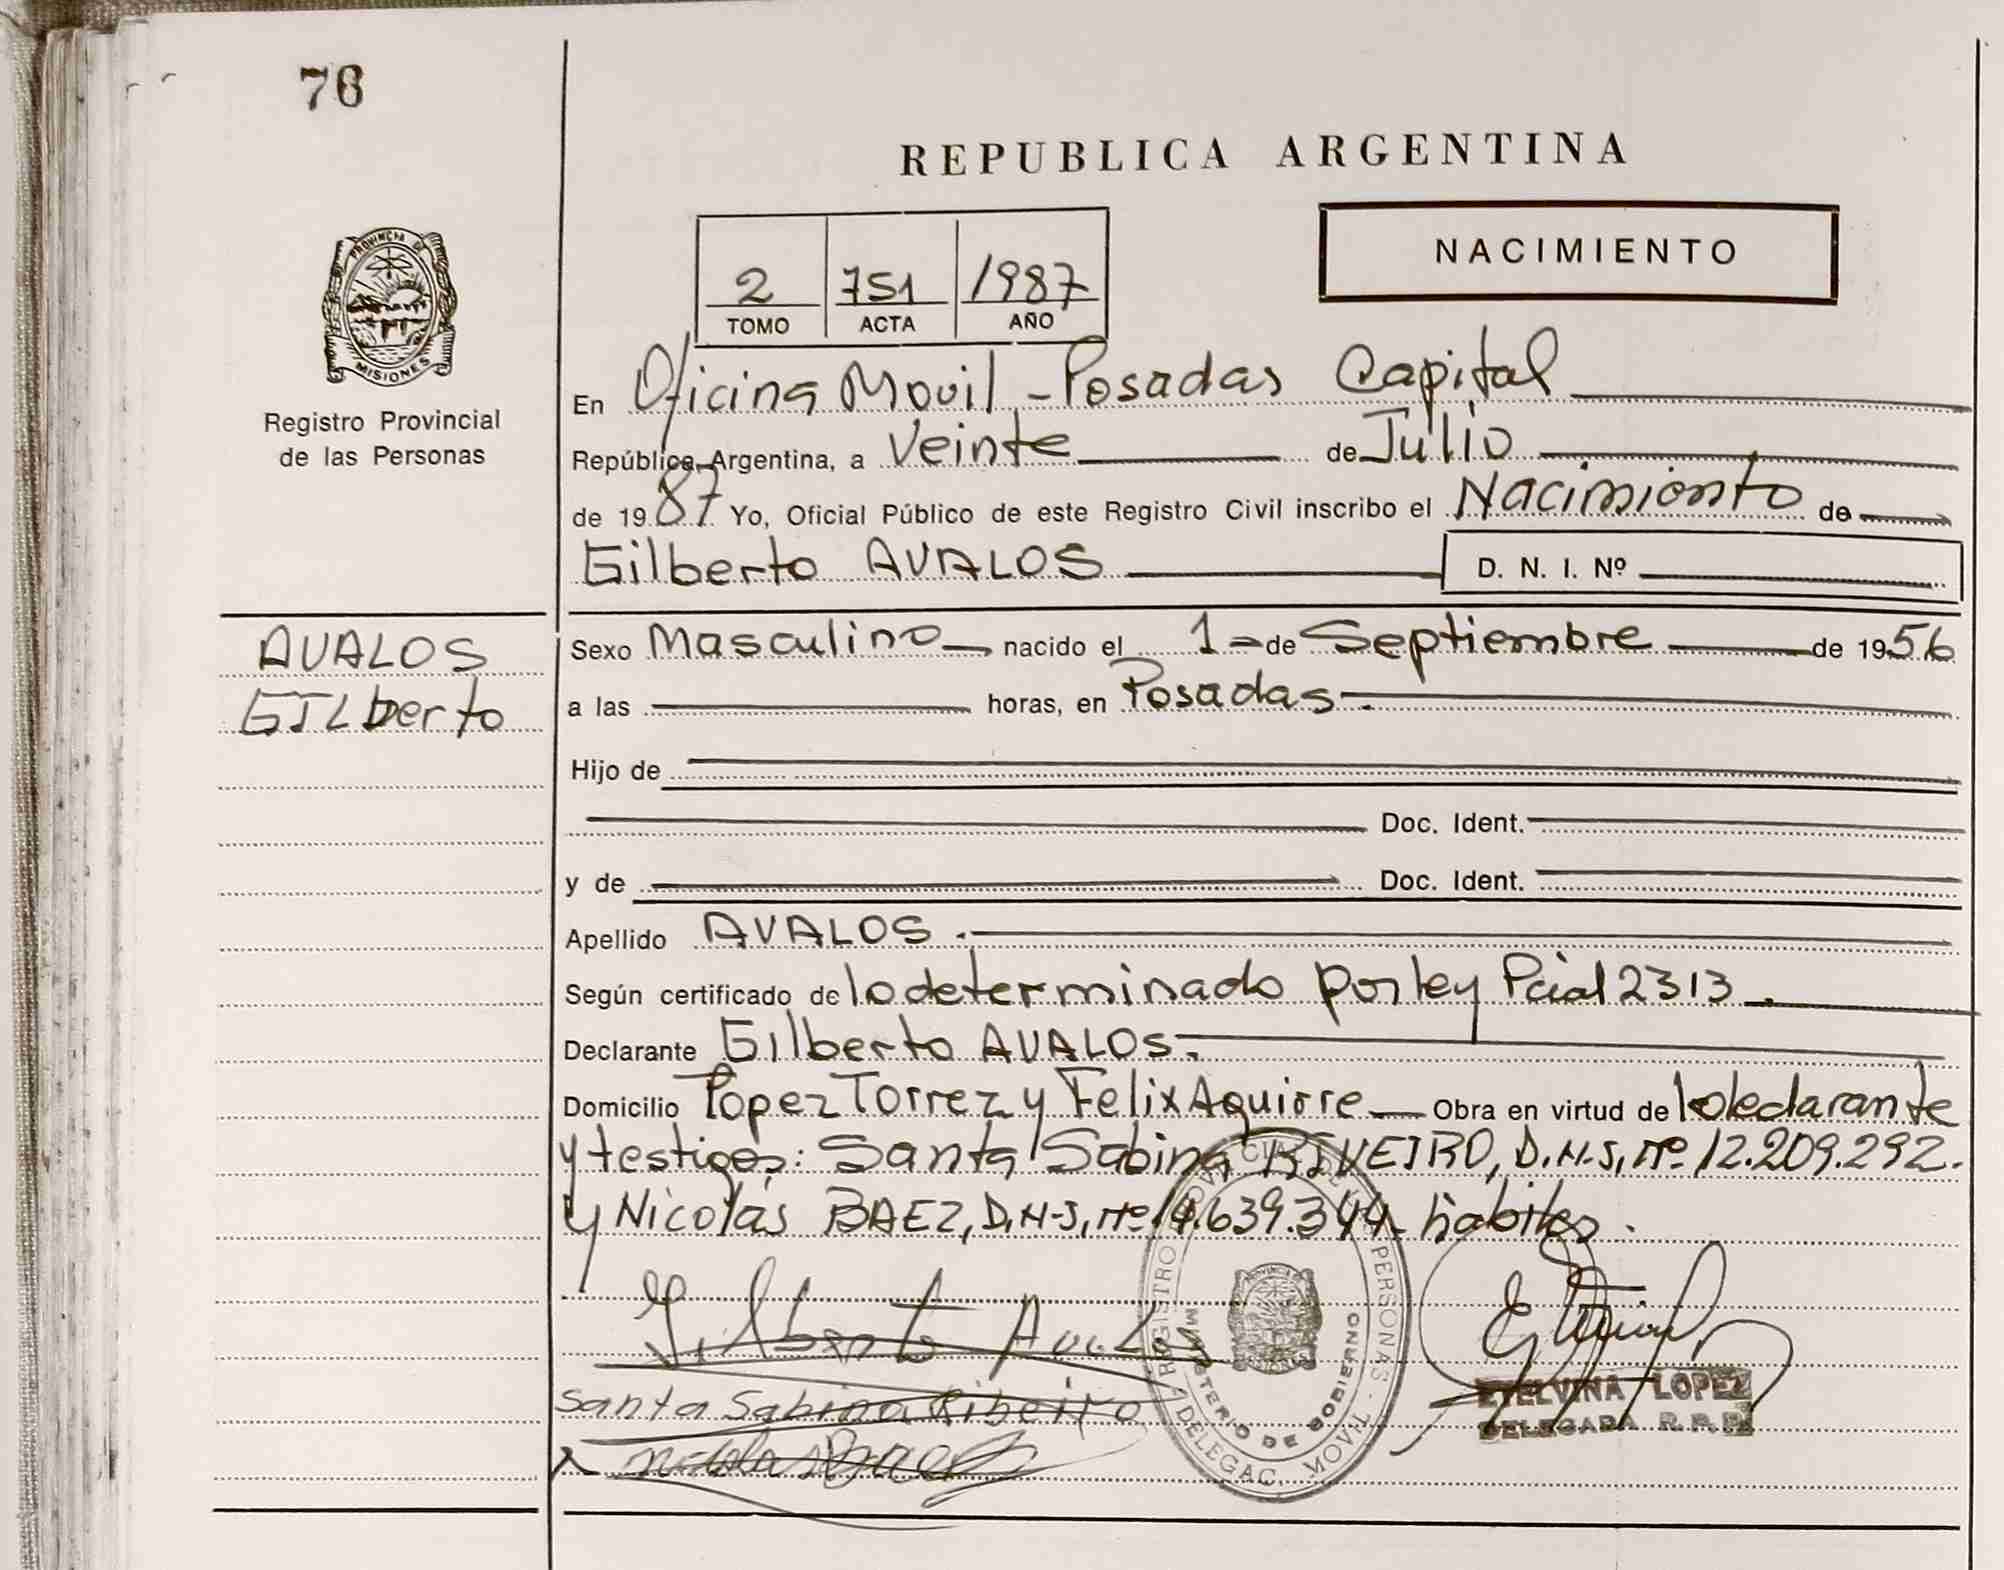 76
REPUBLICA ARGENTINA
NACIMIENTO
2 751 1987
TOMO ACTA AÑO
PROVINCIA DE
MISIONES
Registro Provincial
de las Personas
En Oficina Movil - Posadas Capital
República Argentina, a Veinte de Julio
de 1987 Yo, Oficial Público de este Registro Civil inscribo el Nacimiento de
Gilberto AVALOS
D. N. I. Nº
AVALOS
GILberto
Sexo Masculino nacido el 1 de Septiembre de 1956
a las horas, en Posadas
Hijo de
Doc. Ident.
y de Doc. Ident.
Apellido AVALOS.
Según certificado de lo determinado por ley Pcial 2313.
Declarante Gilberto AVALOS.
Domicilio Lopez Torrez y Felix Aguirre Obra en virtud de lo declarante
y testigos: Santa Sabina RIVEIRO, D.N.I, Nº 12.209.292.
y Nicolás BAEZ, D.N.I, Nº 14.639.344 habiles.
Gilberto Avalos
Santa Sabina Ribeiro
Nicolas Baez
REGISTRO PERSONAS - DELEGAC. MOVIL
MINISTERIO DE GOBIERNO
ETELVINA LOPEZ
DELEGADA R.P.P.